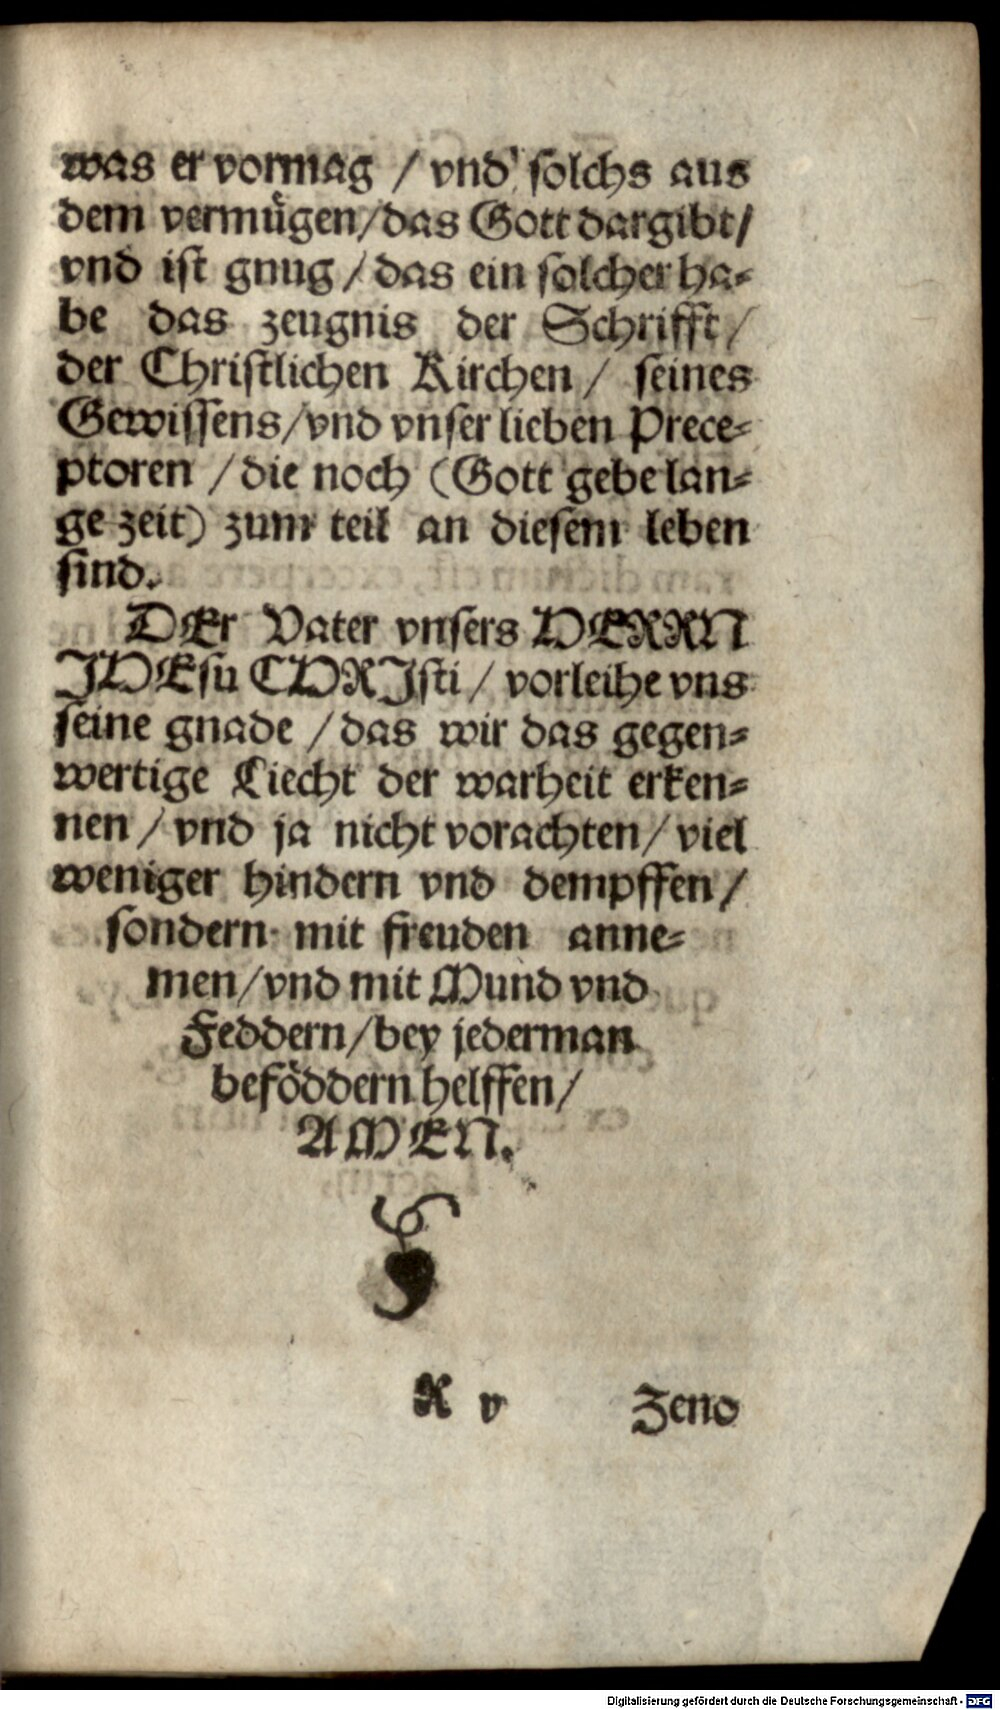 was er vormag / vnd solchs aus
dem vermügen/das Gott dargibt/
vnd ist gnug / das ein solcher ha-
be das zeugnis der Schrifft /
der Christlichen Kirchen / seines
Gewissens/vnd vnser lieben Prece-
ptoren / die noch (Gott gebe lan-
ge zeit) zum teil an diesem leben
sind.
DEr Vater vnsers HERRN
JHEsu CHRJsti / vorleihe vns
seine gnade / das wir das gegen-
wertige Liecht der warheit erken-
nen / vnd ja nicht vorachten / viel
weniger hindern vnd dempffen /
sondern mit freuden anne-
men/vnd mit Mund vnd
Feddern/bey jederman
beföddern helffen/
AMEN.
K v Zeno
Digitalisierung gefördert durch die Deutsche Forschungsgemeinschaft - DFG